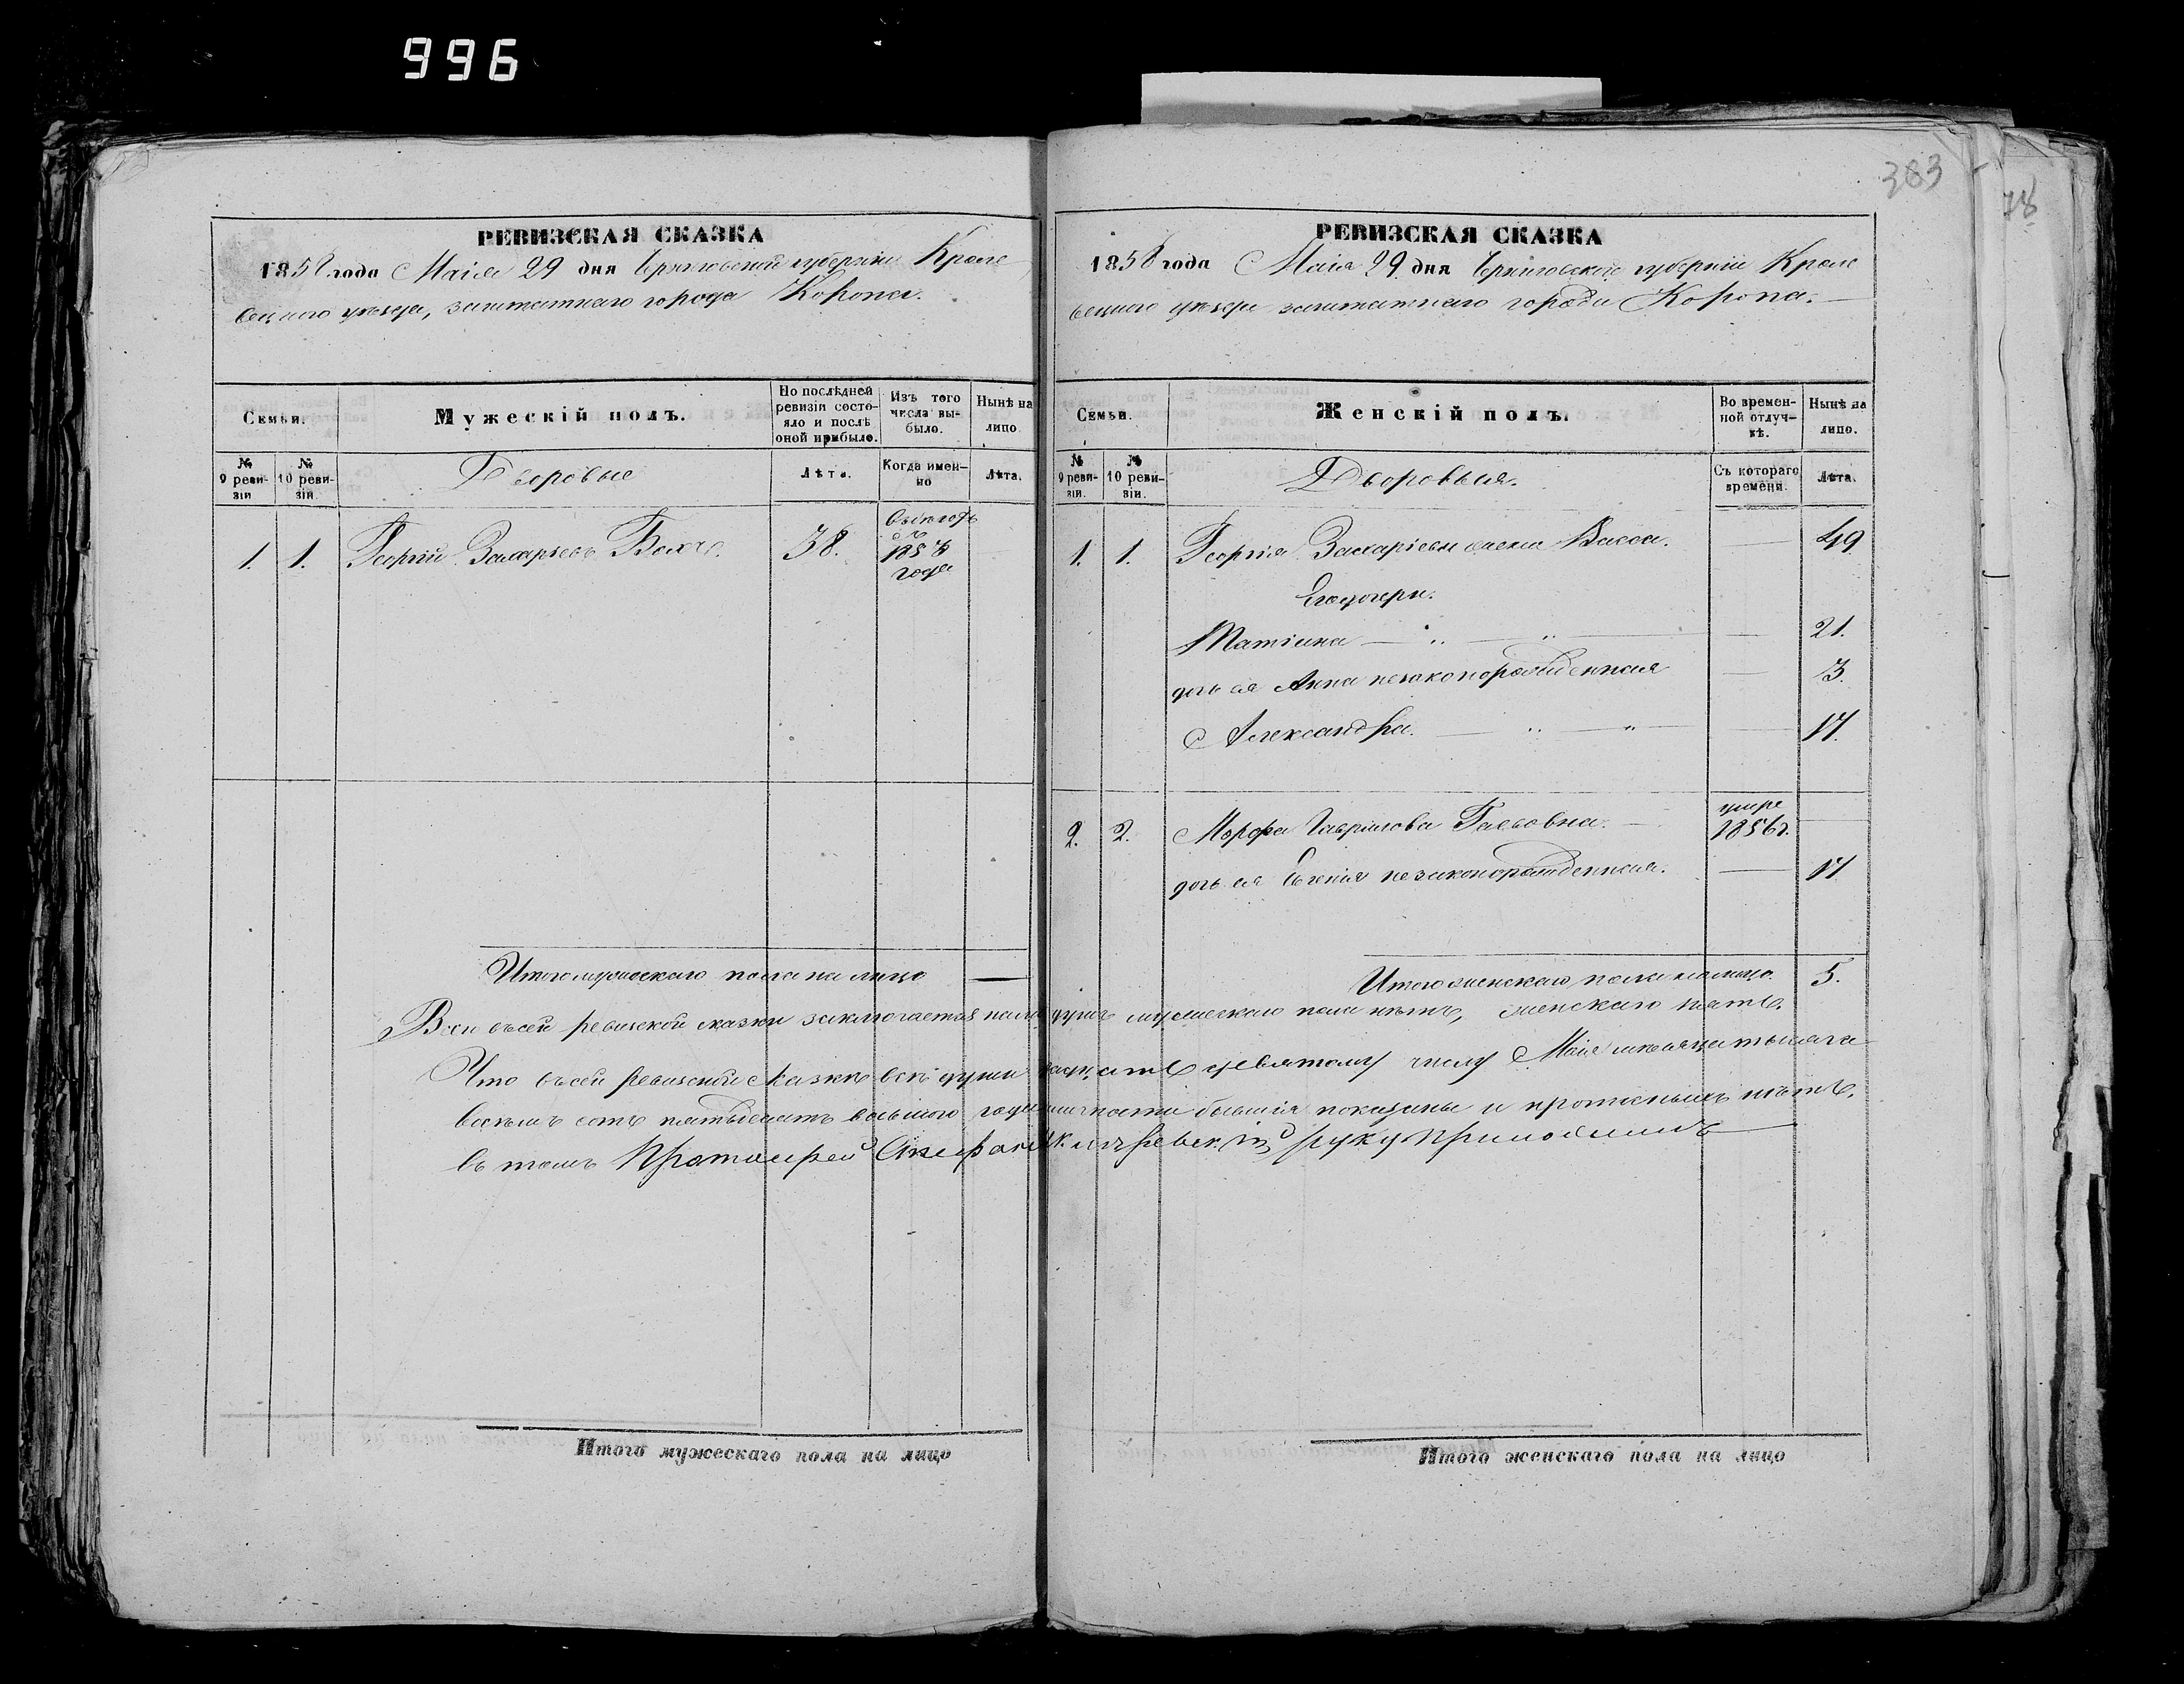 996
383
78
РЕВИЗСКАЯ СКАЗКА
1858 года Маія 29 дня Черниговской губерніи Кроле
вецкаго уѣзда, заштатнаго города Коропа.
Семьи.
Мужескій полъ.
По послѣдней ревизіи состояло и послѣ оной прибыло.
Изъ того числа выбыло.
Нынѣ на лицо.
№ 9 ревизіи
№ 10 ревизіи.
Дворовые
Лѣта.
Когда именно
Лѣта.
1. 1. Георгій Захарьевъ 38.
185
года
Итого мужескаго пола на лицо —
РЕВИЗСКАЯ СКАЗКА
1858 года Маія 29 дня Черниговской губерніи Кроле
вецкаго уѣзда заштатнаго города Коропа.
Семьи.
Женскій полъ.
Во временной отлучкѣ.
Нынѣ на лицо.
№ 9 ревизіи.
№ 10 ревизіи.
Дворовыя.
Съ котораго времени.
Лѣта.
1. 1. Георгія Захаріева жена Васса. — 49
Его дочери.
Татіана — 21.
дочь ея Анна незаконорожденная — 3.
Александра. — 17.
2. 2. Гаврилова умре 1856 г. —
дочь ея незаконорожденная. — 17
Итого женскаго пола на лицо. 5.
Всего въ сей ревизской сказки заключается на лицо душъ мужескаго пола нѣтъ, женскаго пять.
Что въ сей ревизской сказкѣ всѣ души двадцать девятому числу Маія мѣсяца тысяча
восемь сотъ пятьдесятъ восьмого года бывшія показаны и прописныхъ нѣтъ,
въ томъ Протоіерей руку приложилъ
Итого мужескаго пола на лицо
Итого женскаго пола на лицо